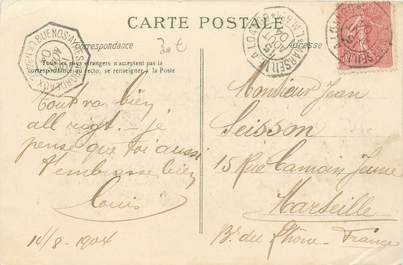 CARTE POSTALE
Correspondance
Adresse
Tous les pays étrangers n'acceptent pas la
correspondance au recto, se renseigner à la Poste
30€
BUENOS-AYRES
MARSEILLE A
Tout va bien
all right - je
pense que toi aussi
t'embrasse bien
Louis
16/8 - 1904
Monsieur Jean
Seisson
15 Rue Camoin Jeune
Marseille
B. du Rhône - France